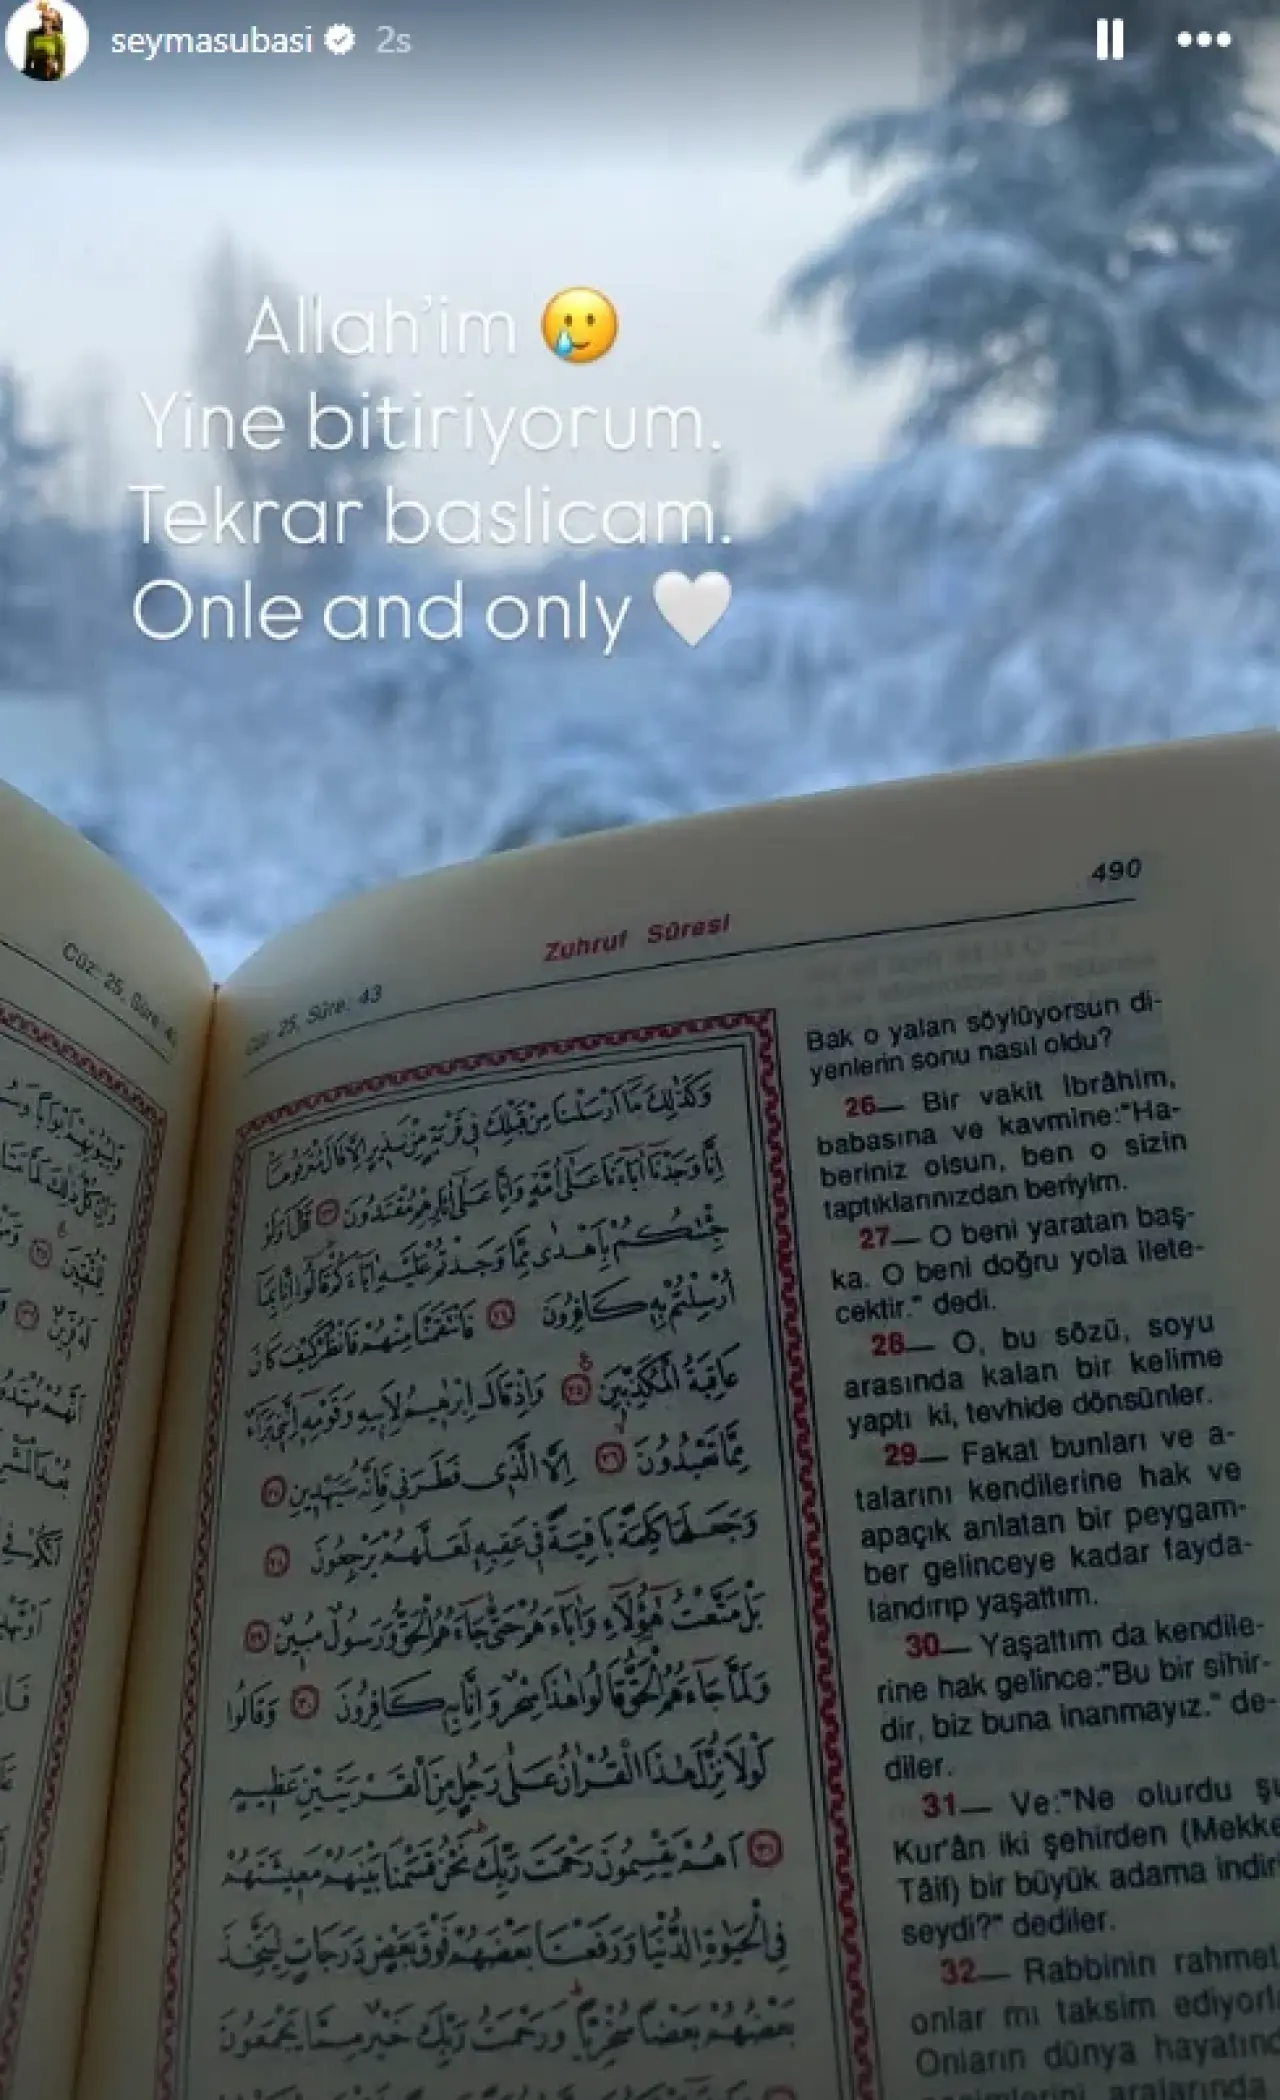 seymasubasi 2s
Allah'im 🥲
Yine bitiriyorum.
Tekrar baslicam.
Onle and only 🤍
490
Zuhruf Sûresi
Cüz: 25, Sûre: 43
Cüz: 25, Sûre:
وَكَذٰلِكَ مَٓا اَرْسَلْنَا مِنْ قَبْلِكَ فٖي قَرْيَةٍ مِنْ نَذٖيرٍ اِلَّا قَالَ مُتْرَفُوهَٓا
اِنَّا وَجَدْنَٓا اٰبَٓاءَنَا عَلٰٓى اُمَّةٍ وَاِنَّا عَلٰٓى اٰثَارِهِمْ مُقْتَدُونَ ٢٣ قَالَ اَوَلَوْ
جِئْتُكُمْ بِاَهْدٰى مِمَّا وَجَدْتُمْ عَلَيْهِ اٰبَٓاءَكُمْ قَالُٓوا اِنَّا بِمَٓا
اُرْسِلْتُمْ بِهٖ كَافِرُونَ ٢٤ فَانْتَقَمْنَا مِنْهُمْ فَانْظُرْ كَيْفَ كَانَ
عَاقِبَةُ الْمُكَذِّبٖينَ ٢٥ وَاِذْ قَالَ اِبْرٰهٖيمُ لِاَبٖيهِ وَقَوْمِهٖٓ اِنَّنٖي بَرَٓاءٌ
مِمَّا تَعْبُدُونَ ٢٦ اِلَّا الَّذٖي فَطَرَنٖي فَاِنَّهُ سَيَهْدٖينِ ٢٧
وَجَعَلَهَا كَلِمَةً بَاقِيَةً فٖي عَقِبِهٖ لَعَلَّهُمْ يَرْجِعُونَ ٢٨
بَلْ مَتَّعْتُ هٰٓؤُلَٓاءِ وَاٰبَٓاءَهُمْ حَتّٰى جَٓاءَهُمُ الْحَقُّ وَرَسُولٌ مُبٖينٌ ٢٩
وَلَمَّا جَٓاءَهُمُ الْحَقُّ قَالُوا هٰذَا سِحْرٌ وَاِنَّا بِهٖ كَافِرُونَ ٣٠ وَقَالُوا
لَوْلَا نُزِّلَ هٰذَا الْقُرْاٰنُ عَلٰى رَجُلٍ مِنَ الْقَرْيَتَيْنِ عَظٖيمٍ
٣١ اَهُمْ يَقْسِمُونَ رَحْمَتَ رَبِّكَ نَحْنُ قَسَمْنَا بَيْنَهُمْ مَعٖيشَتَهُمْ
فِي الْحَيٰوةِ الدُّنْيَا وَرَفَعْنَا بَعْضَهُمْ فَوْقَ بَعْضٍ دَرَجَاتٍ لِيَتَّخِذَ
بَعْضُهُمْ بَعْضًا سُخْرِيًّا وَرَحْمَتُ رَبِّكَ خَيْرٌ مِمَّا يَجْمَعُونَ
Bak o yalan söylüyorsun di-
yenlerin sonu nasıl oldu?
26— Bir vakit İbrâhim,
babasına ve kavmine:"Ha-
beriniz olsun, ben o sizin
taptıklarınızdan beriyim.
27— O beni yaratan baş-
ka. O beni doğru yola ilete-
cektir." dedi.
28— O, bu sözü, soyu
arasında kalan bir kelime
yaptı ki, tevhide dönsünler.
29— Fakat bunları ve a-
talarını kendilerine hak ve
apaçık anlatan bir peygam-
ber gelinceye kadar fayda-
landırıp yaşattım.
30— Yaşattım da kendile-
rine hak gelince:"Bu bir sihir-
dir, biz buna inanmayız." de-
diler.
31— Ve:"Ne olurdu şu
Kur'ân iki şehirden (Mekke
Tâif) bir büyük adama indiril
seydi?" dediler.
32— Rabbinin rahmet
onlar mı taksim ediyorl
Onların dünya hayatınd